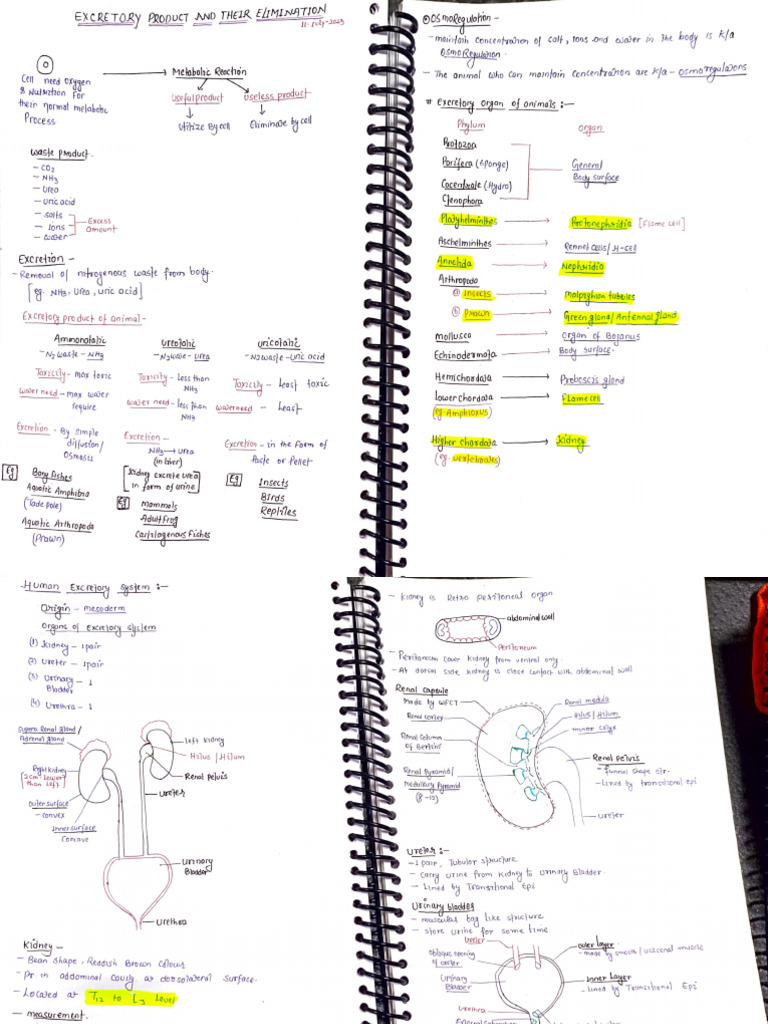 EXCRETORY PRODUCT AND THEIR ELIMINATION
11-July-2023
Cell need oxygen
& Nutrition for
their normal metabolic
Process
Metabolic Reaction
Useful product
useless product
Utilize by cell
Eliminate by cell
waste product
- CO2
- NH3
- urea
- uric acid
- salts
- ions
- water
Excess
Amount
Excretion -
- Removal of nitrogeneous waste from body.
[eg. NH3, Urea, uric acid]
Excretory product of animal -
Ammonotalic
- N2 waste - NH3
Toxicity - max toxic
water need - max water
require
Excretion - By simple
diffusion/
Osmosis
Eg
Bony fishes
Aquatic Amphibia
(Tadepole)
Aquatic Arthropoda
(Prawn)
ureotalic
- N2 waste - urea
Toxicity - Less than
NH3
water need - less than
NH3
Excretion -
NH3 → urea
(in liver)
[kidney excrete urea
in form of urine]
Eg
mammels
Adult frog
Cartilagenous fishes
uricotalic
- N2 waste - uric acid
Toxicity - Least toxic
water need - Least
Excretion - in the form of
Paste or Pellet
Eg
Insects
Birds
Reptiles
OSmoRegulation -
- maintain concentration of salt, Ions and water in the body is k/a
OsmoRegulation.
- The animal who can maintain concentration are k/a - osmoregulators
# Excretory organ of animals :-
Phylum
organ
Protozoa
Porifera (Sponge)
Cocentrate (Hydro)
Ctenophora
General
Body surface
Platyhelminthes
Protonephridia [Flame cell]
Aschelminthes
Rennet cells/H-cell
Annelida
Nephridia
Arthropoda
(a) insects
malpighian tubules
(b) Prawn
Green gland/Antennal gland
mollusca
organ of Bojanus
Echinodermata
Body surface.
Hemichordata
Proboscis gland
lower chordata
Flame cell
(eg. Amphioxus)
Higher chordata
kidney
(eg. vertebrates)
Human Excretory system :-
Origin - mesoderm
Organs of Excretory system
(1) Kidney - 1 pair
(2) Ureter - 1 pair
(3) Urinary - 1
Bladder
(4) Urethra - 1
Supra Renal gland/
Adrenal gland
Right kidney
[2cm Lower
than left]
outer surface
- convex
Inner surface
Concave
left kidney
Hilus / Hilum
Renal Pelvis
ureter
Urinary
Bladder
Urethra
Kidney -
- Bean shape, Reddish Brown colour
- Pr in abdominal cavity at dorsolateral surface.
- Located at T12 to L3 Level
- measurement.
- Kidney is Retro peritoneal organ
abdominal wall
Peritoneum
- Peritoneum cover kidney from ventral only.
- At dorsal side kidney is close contact with abdominal wall
Renal capsule
made by WFCT
Renal cortex
Renal column
of Bertini
Renal Pyramid/
Medullary Pyramid
(8-15)
Renal medula
Hilus/Hilum
minor calyx
Renal pelvis
- funnel shape str.
- Lined by transitional epi
ureter
Ureter :-
- 1 pair, Tubular structure
- carry urine from kidney to urinary Bladder.
- Lined by Transitional Epi
Urinary bladder
- muscular bag like structure
- store urine for some time
Ureter
Oblique opening
of ureter
Urinary
Bladder
urethra
outer layer
- made by smooth/visceral muscle
Inner layer
- Lined by Transitional Epi